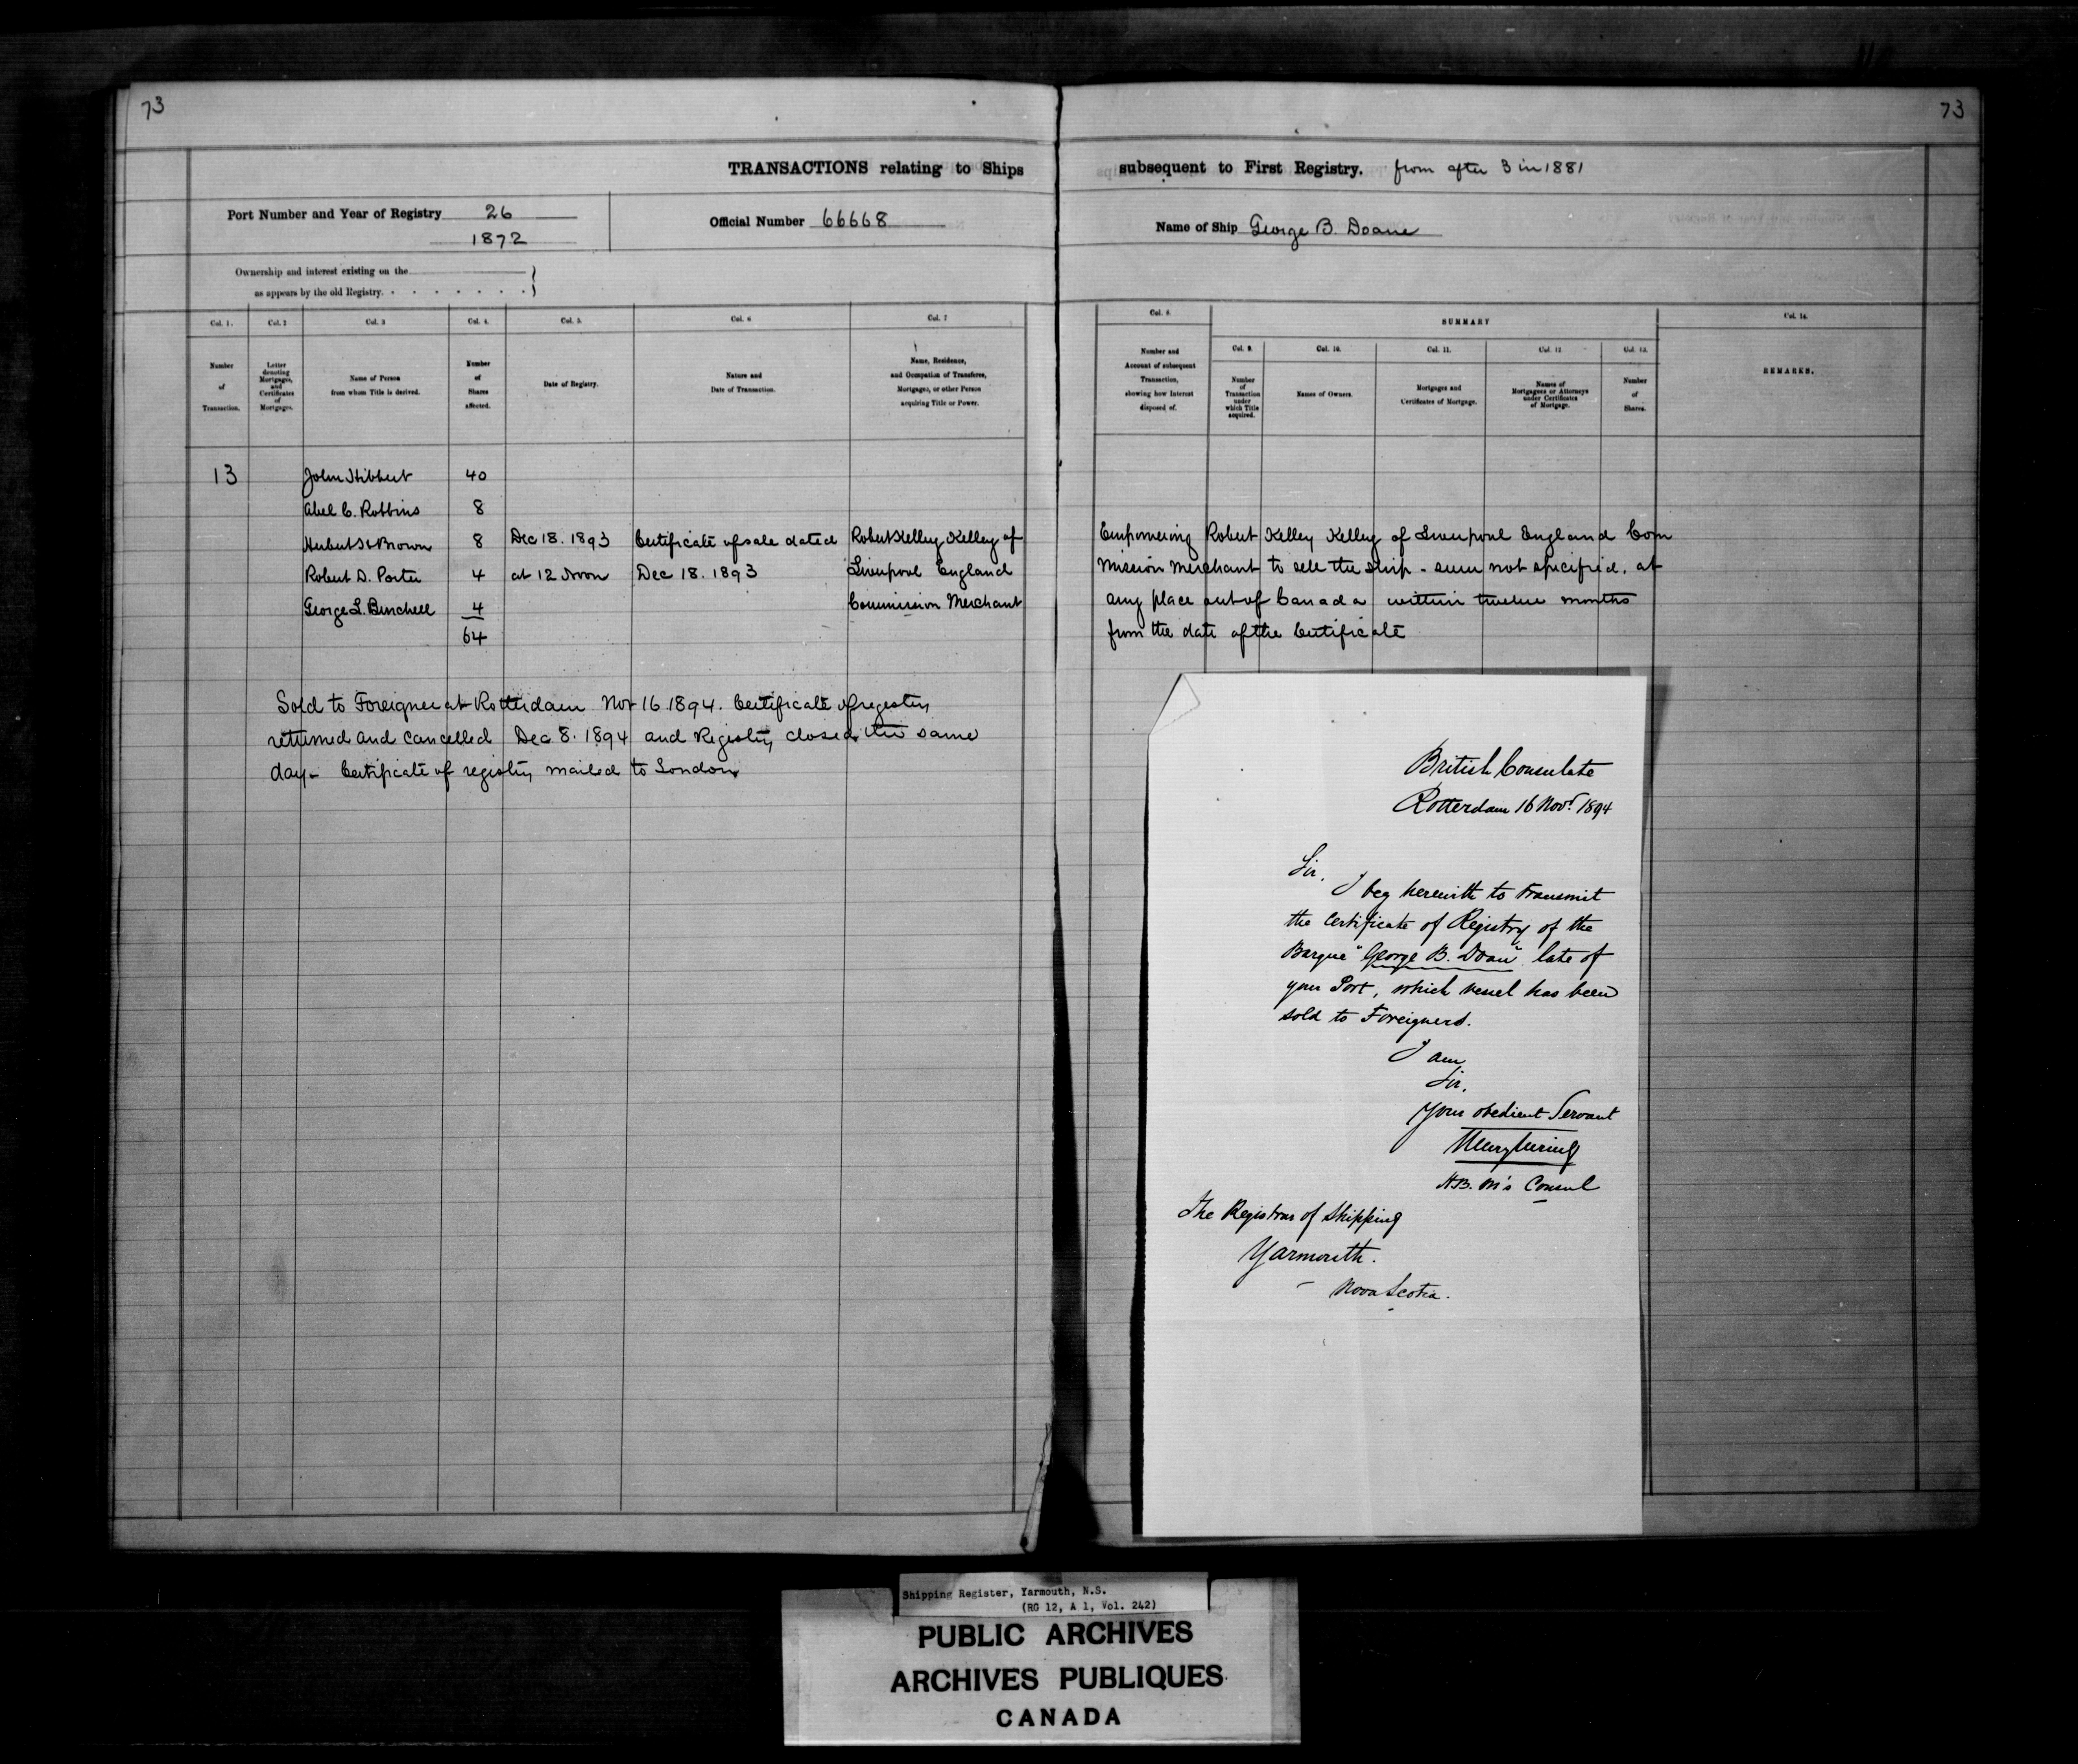 73
73
TRANSACTIONS relating to Ships
subsequent to First Registry. from after 3 in 1881
Port Number and Year of Registry 26
1872
Official Number 66668
Name of Ship George B. Doane
Ownership and interest existing on the
as appears by the old Registry.
Col. 1.
Col. 2
Col. 3
Col. 4.
Col. 5.
Col. 6
Col. 7
Number of Transaction.
Letter denoting Mortgages, and Certificates of Mortgages.
Name of Person from whom Title is derived.
Number of Shares affected.
Date of Registry.
Nature and Date of Transaction.
Name, Residence, and Occupation of Transferee, Mortgagee, or other Person acquiring Title or Power.
Col. 8.
SUMMARY
Col. 14.
Col. 9.
Col. 10.
Col. 11.
Col. 12
Col. 13.
Number and Account of subsequent Transaction, showing how Interest disposed of.
Number of Transaction under which Title acquired.
Names of Owners.
Mortgages and Certificates of Mortgage.
Names of Mortgagees or Attorneys under Certificates of Mortgage.
Number of Shares.
REMARKS.
13 John Hibbert 40
Abel C. Robbins 8
Brown 8 Dec 18. 1893 Certificate of sale dated Robert Kelley Kelley of
Robert D. Porter 4 at 12 Noon Dec 18. 1893 Liverpool England
George L. 4 Commission Merchant
64
Empowering Robert Kelley Kelley of Liverpool England Com
mission Merchant to sell the Ship - sum not specified. at
any place out of Canada within twelve months
from the date of the Certificate
Sold to Foreigner at Rotterdam Nov 16 1894. Certificate of registry
returned and cancelled Dec 8. 1894 and Registry closed the same
day - Certificate of registry mailed to London
British Consulate
Rotterdam 16 Novr. 1894
Sir,
I beg herewith to transmit
the Certificate of Registry of the
Barque "George B. Doan" late of
your Port, which vessel has been
sold to Foreigners.
I am
Sir,
Your obedient Servant
H.B.M's Consul
The Registrar of Shipping
Yarmouth.
Nova Scotia.
Shipping Register, Yarmouth, N.S.
(RG 12, A 1, Vol. 242)
PUBLIC ARCHIVES
ARCHIVES PUBLIQUES
CANADA